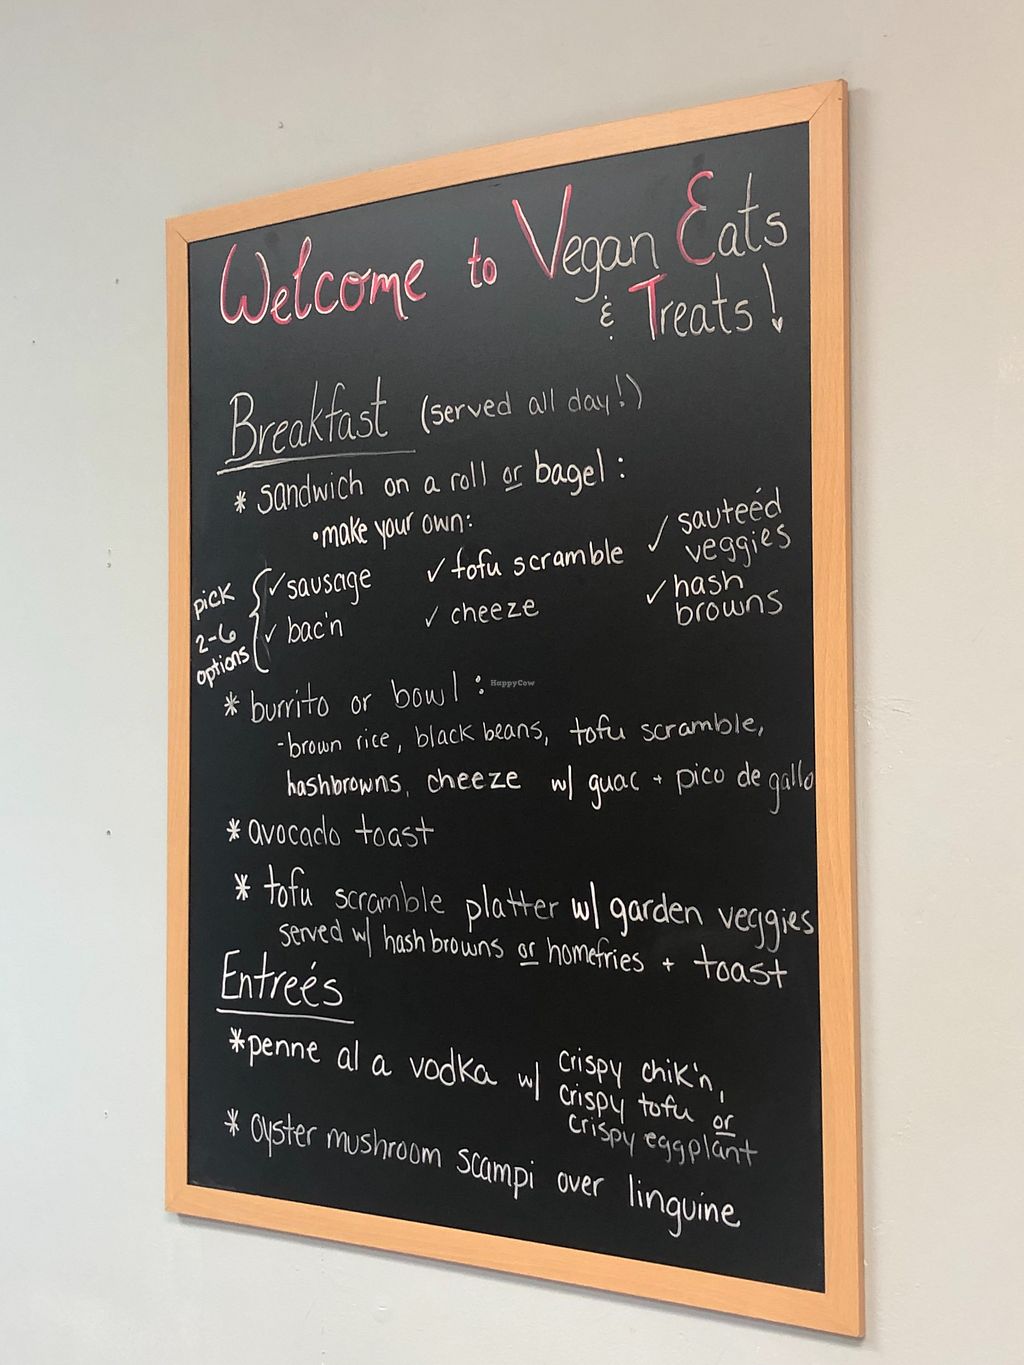 Welcome to Vegan Eats
& Treats!
Breakfast (served all day!)
* sandwich on a roll or bagel:
• make your own:
pick 2-6 options { ✓ sausage ✓ tofu scramble ✓ sauteéd veggies
✓ bac'n ✓ cheeze ✓ hash browns
* burrito or bowl:
HappyCow
- brown rice, black beans, tofu scramble,
hashbrowns, cheeze w/ guac + pico de gallo
* avocado toast
* tofu scramble platter w/ garden veggies
served w/ hashbrowns or homefries + toast
Entreés
* penne al a vodka w/ crispy chik'n,
crispy tofu or
crispy eggplant
* oyster mushroom scampi over linguine